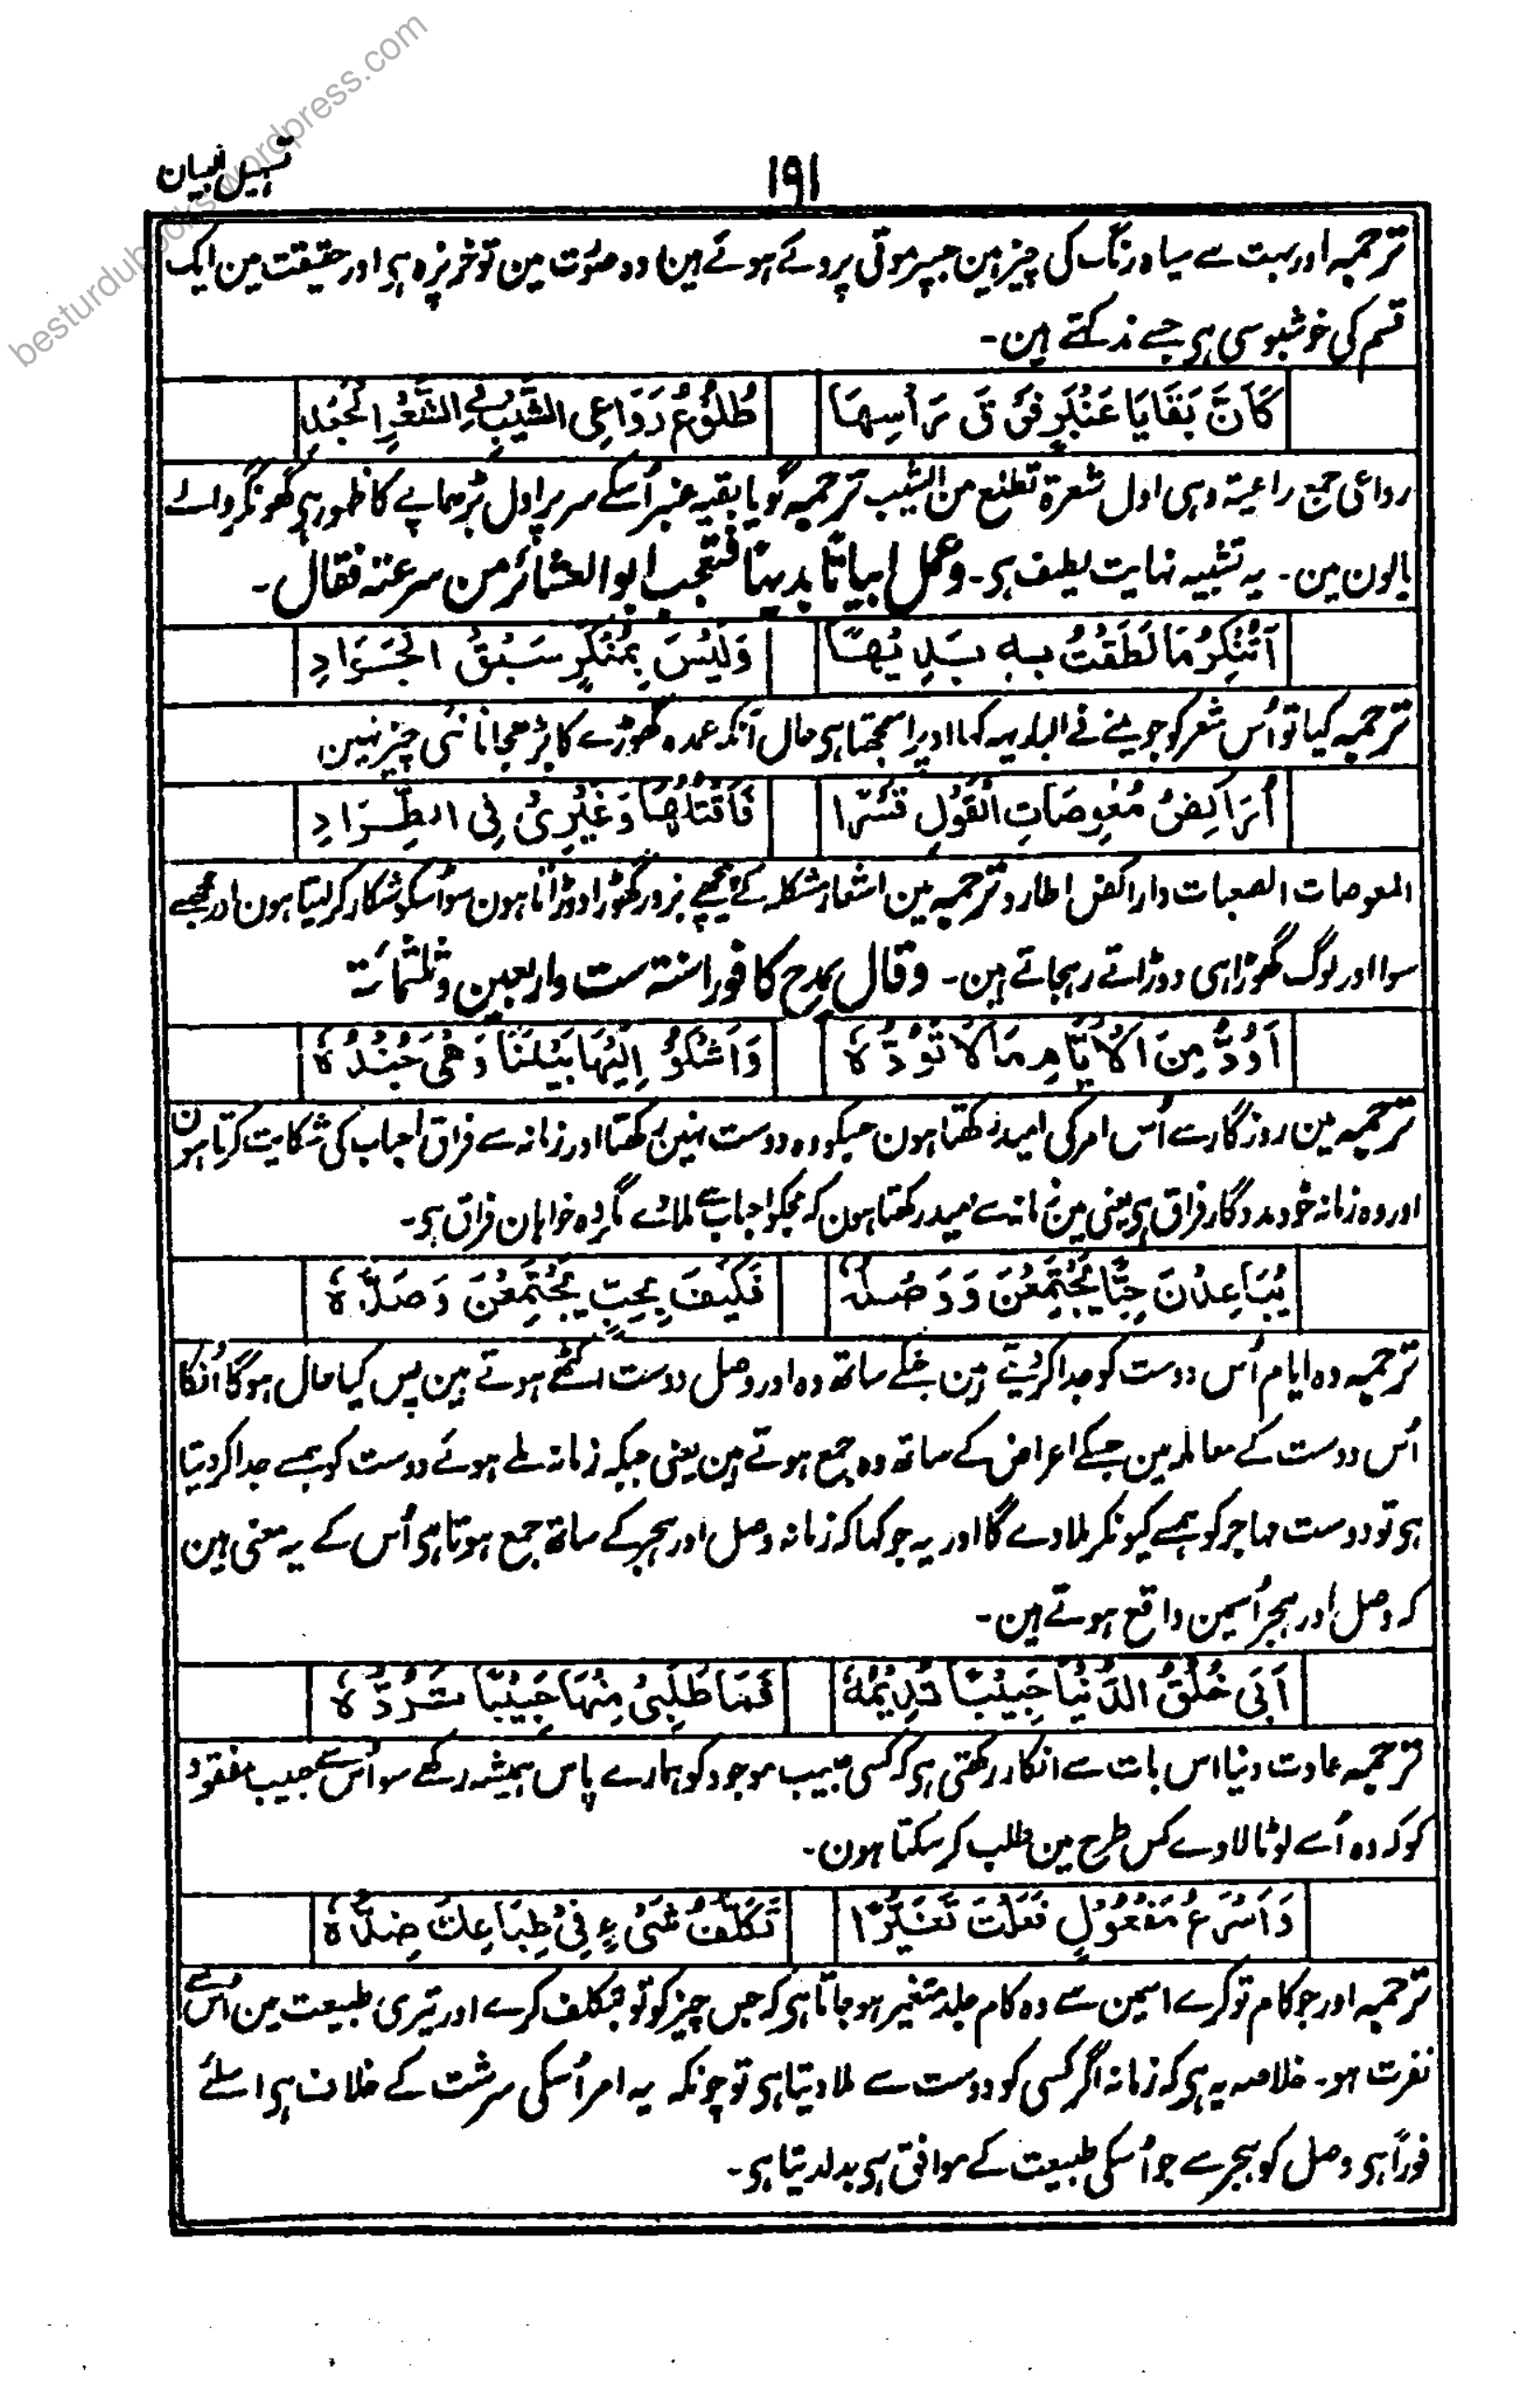 besturdubooks.wordpress.com
تسہیل البیان
۱۹۱
ترجمہ اور بہت سے سیاہ رنگ کی چیز ہین جسپر موتی پروئے ہوئے ہین وہ صورت مین تو خرپزہ ہی اور حقیقت مین ایک
قسم کی خوشبو سی ہی جسے ند کہتے ہین۔
كَاَنَّ بَقَايَا عَنْبَرٍ فَوْقَ رَأْسِهَا
طُلُوْعُ رَوَاعِي الشَّيْبِ فِي الشَّعْرِ الْجَعْدِ
رواعی جمع راعیۃ وہی اول شعرۃ تطلع من الشیب ترجمہ گویا بقیہ عنبر اُسکے سر پر اول بڑھاپے کا ظہور ہی گھونگر والے
بالون مین۔ یہ تشبیہ نہایت لطیف ہی۔ وعمل ابیاتا بدیہا فتعجب ابو العشائر من سرعتہ فقال۔
اَتُنْكِرُ مَا نَطَقْتُ بِهٖ بَدِيْهًا
وَلَيْسَ بِمُنْكَرٍ سَبْقُ الْجَوَادِ
ترجمہ کیا تو اُس شعر کو جو مینے فے البدیہہ کہا اوپرا سمجھتا ہی حال آنکہ عمدہ گھوڑے کا بڑھجانا نئی چیز نہین
اُرَاكِضُ مُعْوِصَاتِ الْقَوْلِ قَسْرًا
فَاَقْتُلُهَا وَغَيْرِيْ فِي الطِّرَادِ
المعوصات الصعبات واراکض اطارد ترجمہ مین اشعار مشکلہ کے پیچھے بزور گھوڑا دوڑاتا ہون سو اُسکو شکار کر لیتا ہون اور مجھسے
سوا اور لوگ گھوڑا ہی دوڑاتے رہجاتے ہین۔ وقال یمدح کافورا سنۃ ست واربعین وثلثمائۃ
اَوَدُّ مِنَ الْاَيَّامِ مَا لَا تَوَدُّهٗ
وَاَشْكُوْ اِلَيْهَا بَيْنَنَا وَهْيَ جُنْدُهٗ
ترجمہ مین روزگار سے اُس امر کی امید رکھتا ہون جسکو وہ دوست نہین رکھتا اور زمانہ سے فراق احباب کی شکایت کرتا ہون
اور وہ زمانہ خود مددگار فراق ہی یعنی مین زمانہ سے امید رکھتا ہون کہ مجکو احباب سے ملا دے مگر وہ خواہان فراق ہی۔
يُبَاعِدْنَ حِبًّا يَجْتَمِعْنَ وَوَصْلُهٗ
فَكَيْفَ بِحِبٍّ يَجْتَمِعْنَ وَصَدُّهٗ
ترجمہ وہ ایام اُس دوست کو جدا کر دیتے ہین جنکے ساتھ وہ اور وصل دوست اکٹھے ہوتے ہین پس کیا حال ہوگا اُنکا
اُس دوست کے معاملہ مین جسکے اعراض کے ساتھ وہ جمع ہوتے ہین یعنی جبکہ زمانہ ملے ہوئے دوست کو ہمسے جدا کر دیتا
ہی تو دوست مہاجر کو ہمسے کیونکر ملا دے گا اور یہ جو کہا کہ زمانہ وصل اور ہجر کے ساتھ جمع ہوتا ہی اُس کے یہ معنی ہین
کہ وصل اور ہجر اُسمین واقع ہوتے ہین۔
اَبٰى خُلُقُ الدُّنْيَا حَبِيْبًا تُدِيْمُهٗ
فَمَا طَلَبِيْ مِنْهَا حَبِيْبًا تَرُدُّهٗ
ترجمہ عادت دنیا اس بات سے انکار رکھتی ہی کہ کسی حبیب موجود کو ہمارے پاس ہمیشہ رکھے سو اُس سے حبیب مفقود
کو کہ وہ اُسے لوٹا لاوے کس طرح مین طلب کر سکتا ہون۔
وَاَسْرَعُ مَفْعُوْلٍ فَعَلْتَ تَغَيُّرًا
تَكَلُّفُ شَيْءٍ فِيْ طِبَاعِكَ ضِدُّهٗ
ترجمہ اور جو کام تو کرے اسمین سے وہ کام جلد متغیر ہو جاتا ہی کہ جس چیز کو تو بتکلف کرے اور تیری طبیعت مین اُس سے
نفرت ہو۔ خلاصہ یہ ہی کہ زمانہ اگر کسی کو دوست سے ملا دیتا ہی تو چونکہ یہ امر اُسکی سرشت کے خلاف ہی اسلئے
فوراً ہی وصل کو ہجر سے جو اُسکی طبیعت کے موافق ہی بدل دیتا ہی۔